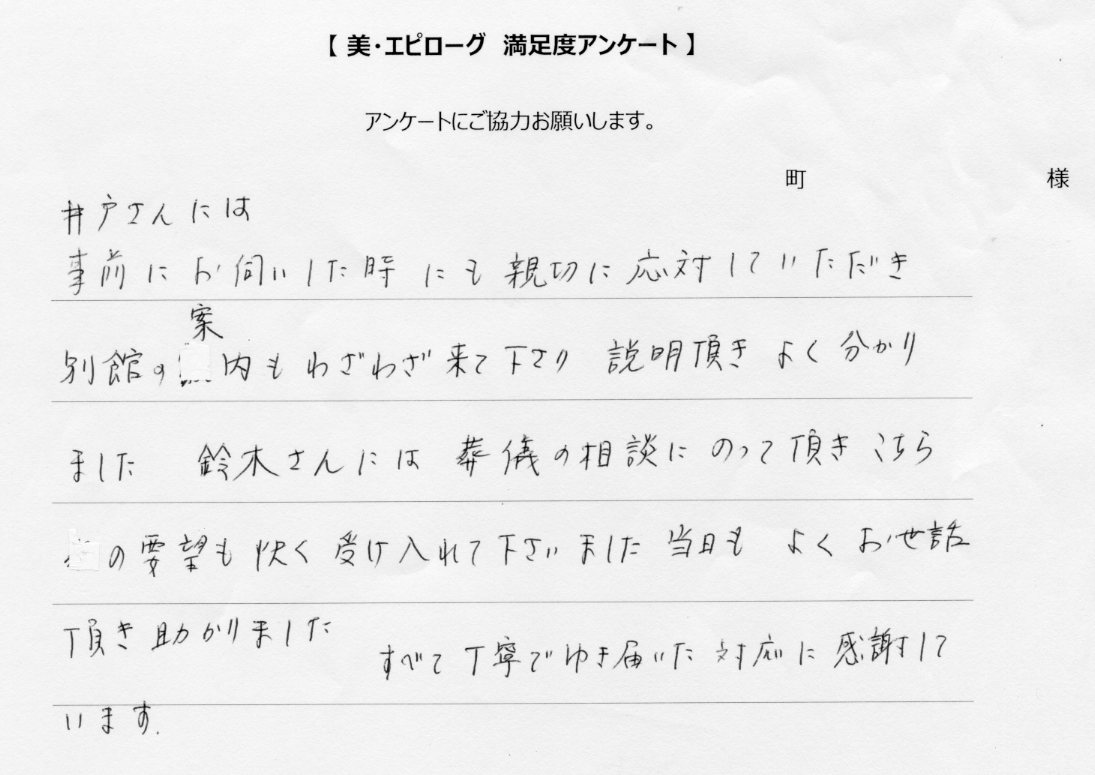 【 美・エピローグ 満足度アンケート 】
アンケートにご協力お願いします。
町 様
井戸さんには
事前にお伺いした時にも親切に応対していただき
別館の案内もわざわざ来て下さり 説明頂きよく分かり
ました 鈴木さんには葬儀の相談にのって頂きこちら
の要望も快く受け入れて下さいました当日もよくお世話
頂き助かりました すべて丁寧でゆき届いた対応に感謝して
います.